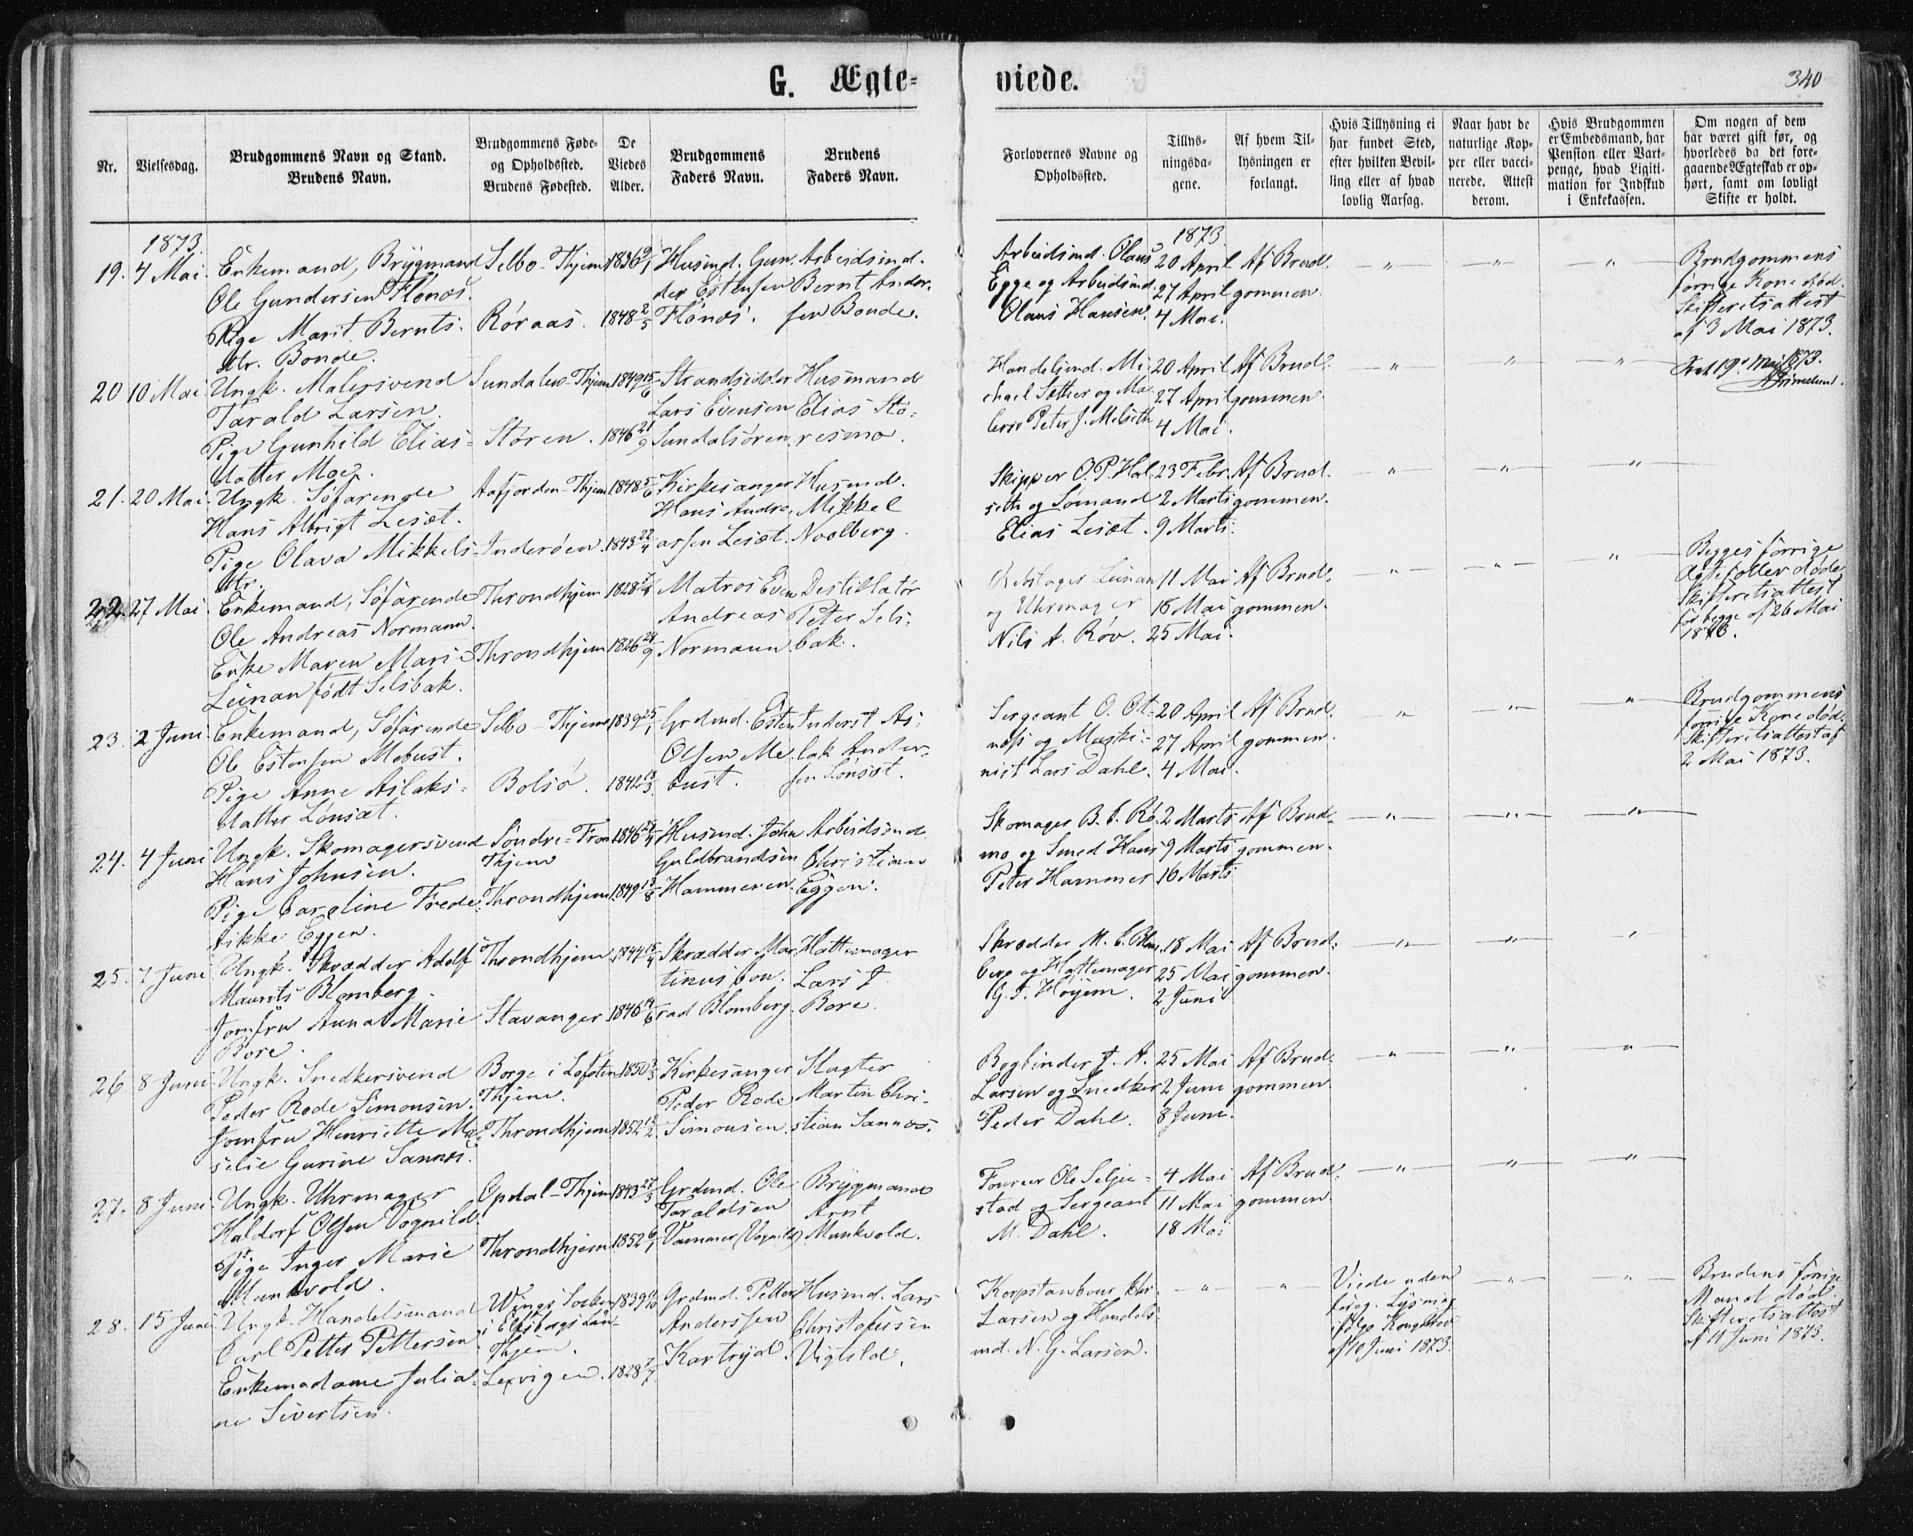 G. Ægte-
viede.
340
Nr.
Vielsesdag.
Brudgommens Navn og Stand.
Brudens Navn.
Brudgommens Føde-
og Opholdssted.
Brudens Fødested.
De
Viedes
Alder.
Brudgommens
Faders Navn.
Brudens
Faders Navn.
Forlovernes Navne og
Opholdssted.
Tillys-
ningsda-
gene.
Af hvem Til-
lysningen er
forlangt.
Hvis Tillysning ei
har fundet Sted,
efter hvilken Bevil-
ling eller af hvad
lovlig Aarsag.
Naar havt de
naturlige Kop-
per eller vacci-
nerede. Attest
derom.
Hvis Brudgommen
er Embedsmand, har
Pension eller Vart-
penge, hvad Ligiti-
mation for Indskud
i Enkekassen.
Om nogen af dem
har været gift før, og
hvorledes da det fore-
gaaende Ægteskab er op-
hørt, samt om lovligt
Skifte er holdt.
1873.
19. 4 Mai.
Enkemand, Brygmand
Ole Gundersen Flønes.
Pige Marit Bernts-
dtr. Bonde.
Selbo - Thjem
Røraas.
1836 9/1
1848 2/5
Husmd. Gun-
der Estensen
Flønes.
Arbeidsmd.
Bernt Ander-
sen Bonde.
Arbeidsmd. Olaus
Egge og Arbeidsmd.
Olaus Hansen.
1873.
20 April
27 April
4 Mai.
Af Brud-
gommen.
Brudgommens
forrige Kone død.
Skifteretsattest
af 3 Mai 1873.
20 10 Mai
Ungk. Malersvend
Tarald Larsen.
Pige Gunhild Elias-
datter Moe.
Sundalen - Thjem
Støren.
1849 15/6
1846 21/9
Strandsidder
Lars Evensen
Sundalsøren
Husmand
Elias Stø-
resmo.
Handelsmd. Mi-
chael Sæther og Ma-
lersv Peter J. Melseth
20 April
27 April
4 Mai.
Af Brud-
gommen.
21. 20 Mai.
Ungk. Søfarende
Hans Albrigt Lesæt.
Pige Olava Mikkels-
dtr.
Aafjorden - Thjem
Inderøen.
1848 5/6
1843 22/4
Kirkesanger
Hans Andre-
assen Lesæt.
Husmd.
Mikkel
Noolberg.
Skipper O. P. Hal-
seth og Sømand
Elias Lesæt.
23 Febr.
2 Marts
9 Marts.
Af Brud-
gommen.
22. 27 Mai.
Enkemand, Søfarende
Ole Andreas Normann.
Enke Maren Marie
Lunan født Selsbak.
Throndhjem
Throndhjem
1828 7/4
1826 28/9
Matros Even
Andreas
Normann
Destillatør
Peter Sels-
bak.
Rebslager Lunan
og Uhrmager
Nils A. Røv.
11 Mai
18 Mai
25 Mai.
Af Brud-
gommen.
Begges forrige
Ægtefæller døde
Skifteretsattest
for begge af 26 Mai
1873.
23. 2 Juni
Enkemand, Søfarende
Ole Estensen Mebust.
Pige Anne Aslaks-
datter Lønsæt.
Selbo - Thjem
Bolsø.
1839 25/1
1842 13/3
Grdmd. Esten
Olsen Me-
bust.
Inderst As-
lak Ander-
sen Lønsæt.
Sergeant O. Ot-
næss og Maski-
nist Lars Dahl.
20 April
27 April
4 Mai.
Af Brud-
gommen.
Brudgommens
forrige Kone død.
Skifteretsattest af
2 Mai 1873.
24. 4 Juni
Ungk. Skomagersvend
Hans Johnsen.
Pige Caroline Frede-
rikke Eggen.
Søndre-Fron
Thjem
Throndhjem
1849 13/8
Husmd. John
Guldbrandsen
Hammeren.
Arbeidsmd
Christian
Eggen.
Skomager B. E. Rø-
mo og Smed Hans
Peter Hammer
2 Marts
9 Marts
16 Marts
Af Brud-
gommen.
25. 7 Juni
Ungk. Skrædder Adolf
Maurits Blomberg.
Jomfru Anna Marie
Bore.
Throndhjem
Stavanger
1844 15/4
1846 14/6
Skrædder Mar-
tinus Con-
rad Blomberg.
Hattemager
Lars J.
Bore.
Skrædder M. C. Blom-
berg og Hattemager
G. F. Høyem.
18 Mai
25 Mai
2 Juni
Af Brud-
gommen.
26 8 Juni
Ungk. Snedkersvend
Peder Rode Simonsen.
Jomfru Henriette Ma-
selie Gurine Sannes.
Borge i Lofoten
Thjem.
Throndhjem
Kirkesanger
Peder Rode
Simonsen.
Slagter
Martin Chri-
stian Sannes.
Bogbinder J. A.
Larsen og Snedker
Peder Dahl.
25 Mai
2 Juni
8 Juni.
Af Brud-
gommen
27. 8 Juni
Ungk. Uhrmager
Haldorf Olsen Vognild
Pige Inger Marie
Munkvold.
Opdal - Thjem
Throndhjem
1843 27/3
1852 6/1
Grdmd. Ole
Taraldsen
Vammer (Vognild)
Brygmand
Arnt
Munkvold.
Fourer Ole Selje-
stad og Sergeant
M. Dahl.
4 Mai
11 Mai
18 Mai
Af Brud-
gommen
28. 15 Juni
Ungk. Handelsmand
Carl Petter Pettersen
Enkemadame Julia-
ne Sivertsen.
Wings Socken
i Elfsborgs Län-
Thjem.
Lexvigen.
1839
1828 7/7
Grdmd. Petter
Anderssen
Husmd. Lars
Christofersen
Vigtild.
Korpstambour Chr.
Larsen og Handels-
md. N. G. Larsen.
Viede uden
foreg. Lysning
ifølge Kongebrev
af 10 Juni 1873.
Brudens forrige
Mand død.
Skifteretsattest
af 11 Juni 1873.